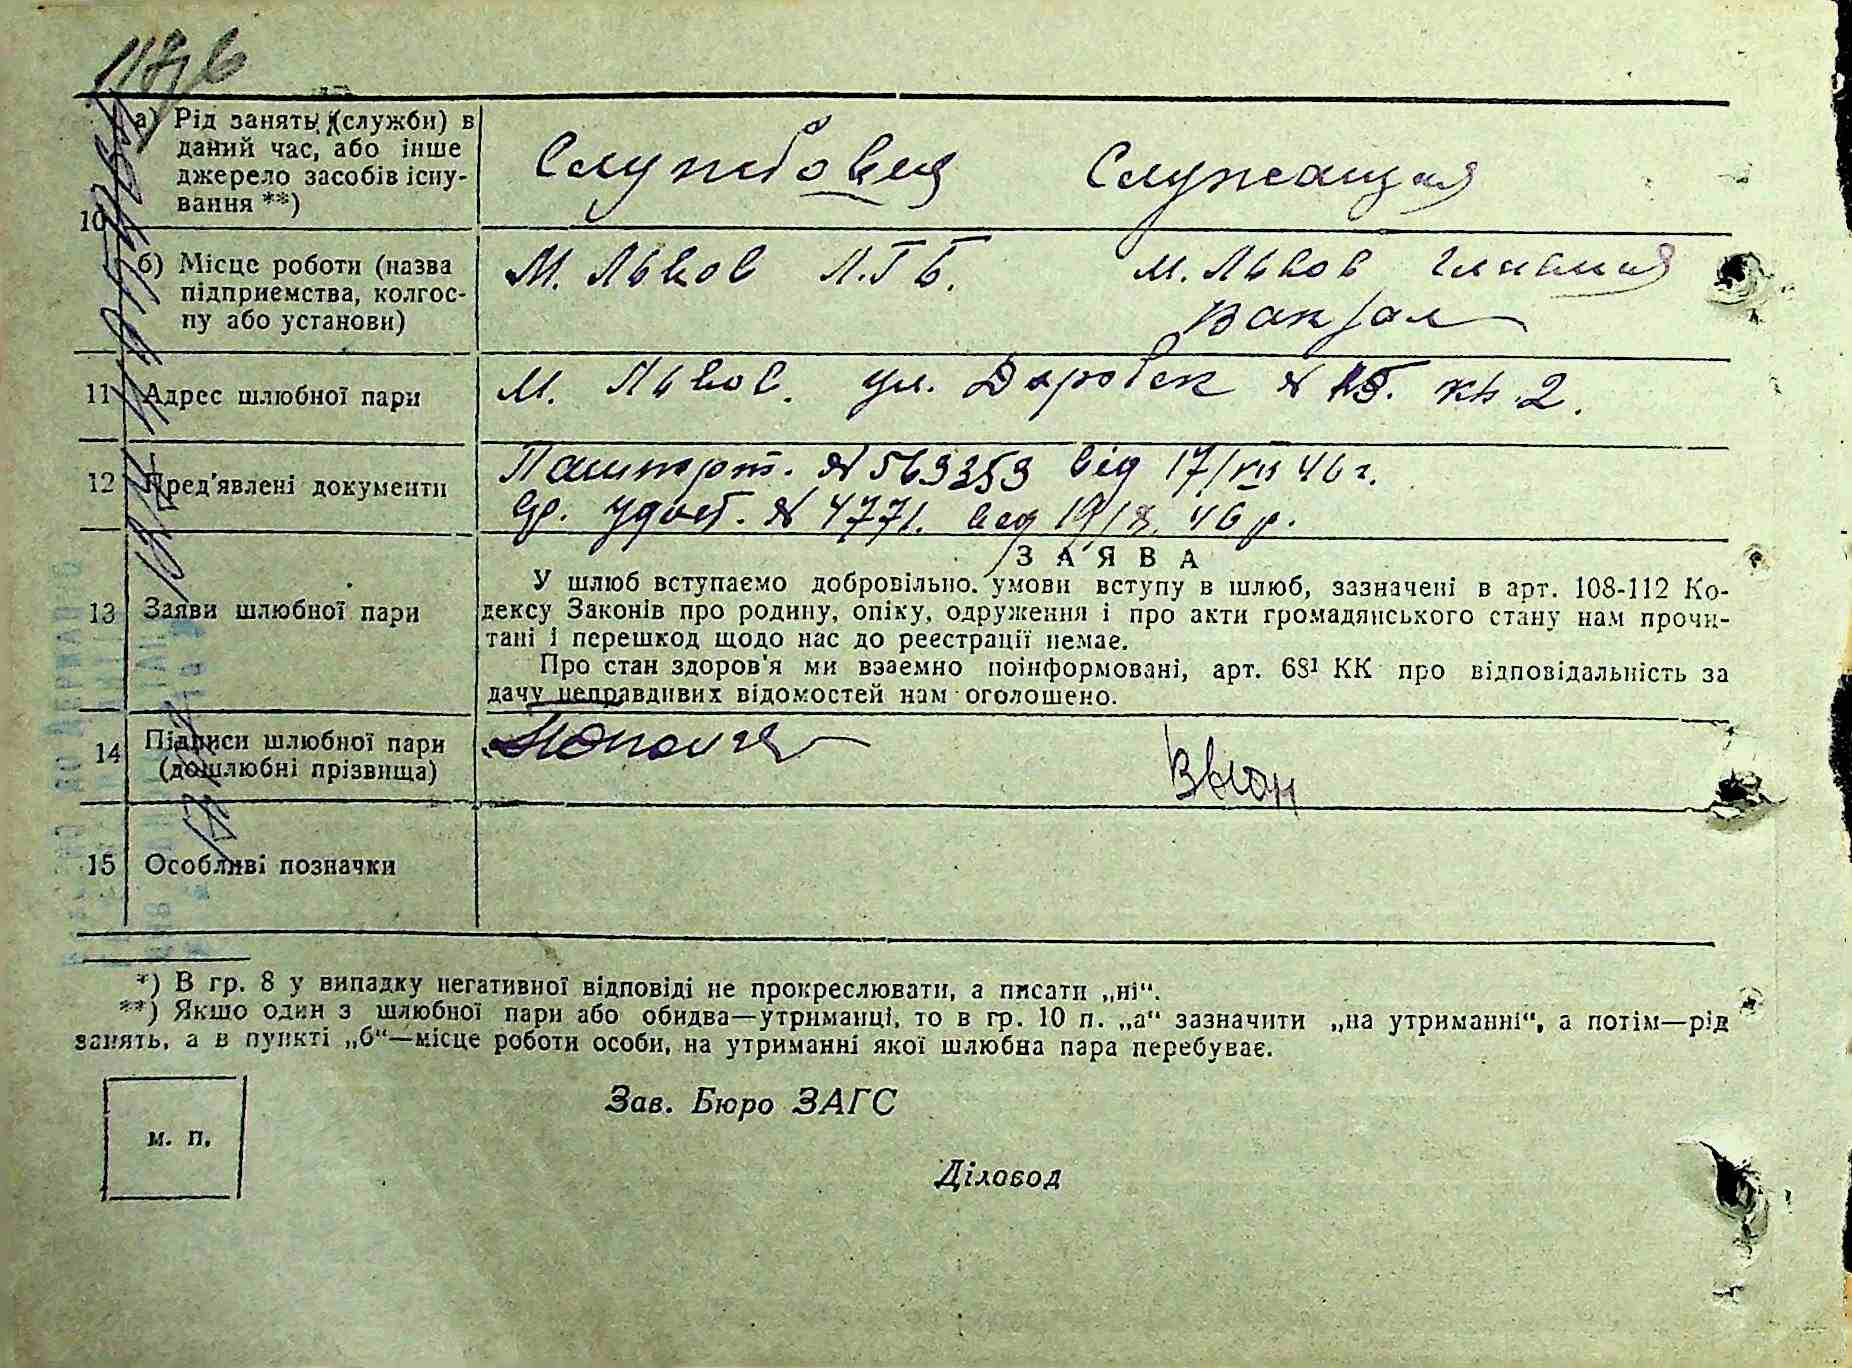 а) Рід занять (служби) в
даний час, або інше
джерело засобів існу-
вання **)
Службовец Служащая
10
б) Місце роботи (назва
підприємства, колгос-
пу або установи)
М. Львов Л.Г.Б. М. Львов главная
Вакзал
11 Адрес шлюбної пари
М. Львов. ул. кв. 2.
12 Пред'явлені документи
Пашпорт. № 569359 від 17/VII 46 г.
удост. № 4771. від 19/ 46 р.
ЗАЯВА
13 Заяви шлюбної пари
У шлюб вступаємо добровільно. умови вступу в шлюб, зазначені в арт. 108-112 Ко-
дексу Законів про родину, опіку, одруження і про акти громадянського стану нам прочи-
тані і перешкод щодо нас до реєстрації немає.
Про стан здоров'я ми взаємно поінформовані, арт. 68¹ КК про відповідальність за
дачу неправдивих відомостей нам оголошено.
14 Підписи шлюбної пари
(дошлюбні прізвища)
15 Особливі позначки
*) В гр. 8 у випадку негативної відповіді не прокреслювати, а писати „ні“.
**) Якшо один з шлюбної пари або обидва—утриманці, то в гр. 10 п. „а“ зазначити „на утриманні“, а потім—рід
занять, а в пункті „б“—місце роботи особи, на утриманні якої шлюбна пара перебуває.
Зав. Бюро ЗАГС
м. п.
Діловод